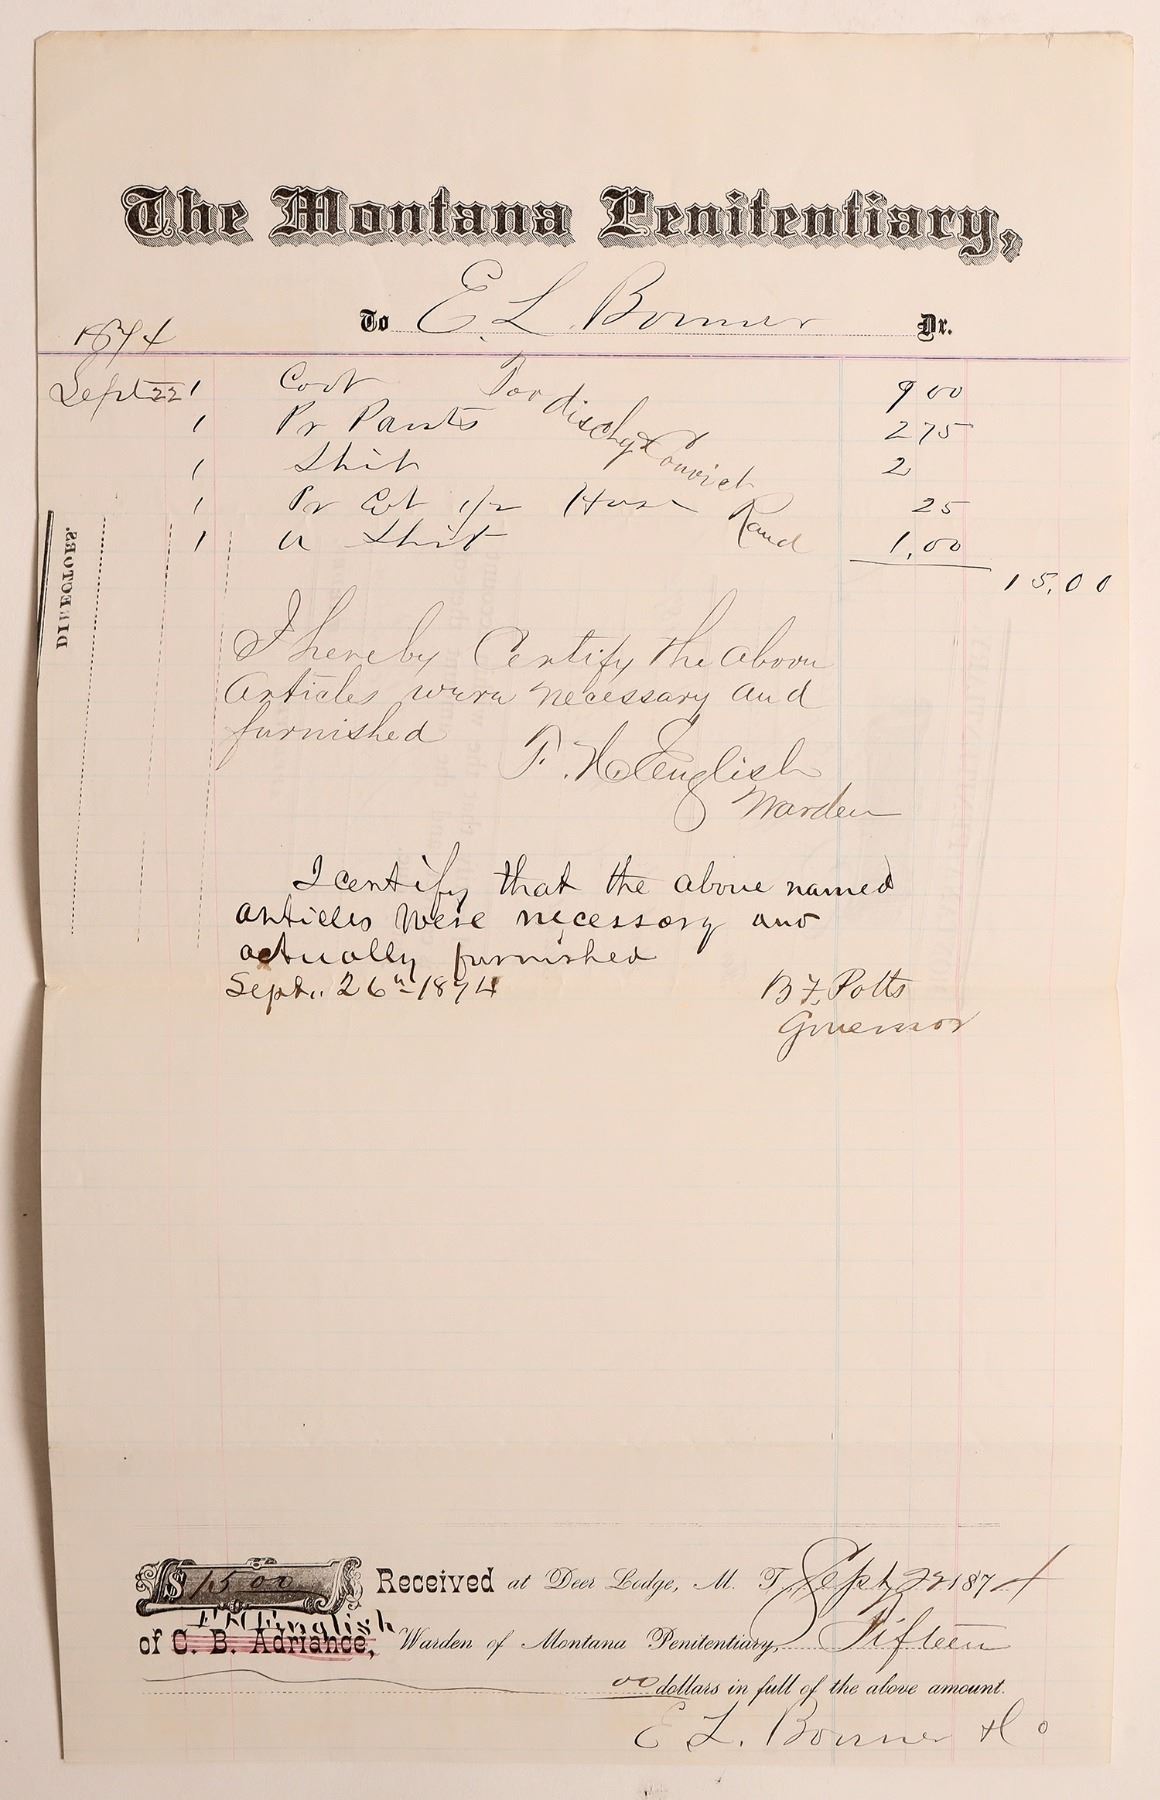 The Montana Penitentiary,
To E. L. Bonner Dr.
1874
Sept 22 1 Coat For dischg Convict 9 00
1 Pr Pants 2 75
1 Shirt 2
1 Pr Cot 1/2 Hose Rand 25
1 U Shirt 1.00
15.00
DIRECTORS.
I hereby Certify the above
articles were necessary and
furnished
F. H. English
Warden
I certify that the above named
articles were necessary and
actually furnished
Sept. 26th 1874 B F. Potts
Governor
$ 15 00 Received at Deer Lodge, M. T, Sept 22 1874
F H English
of C. B. Adriance, Warden of Montana Penitentiary, Fifteen
00 dollars in full of the above amount.
E L. Bonner & Co